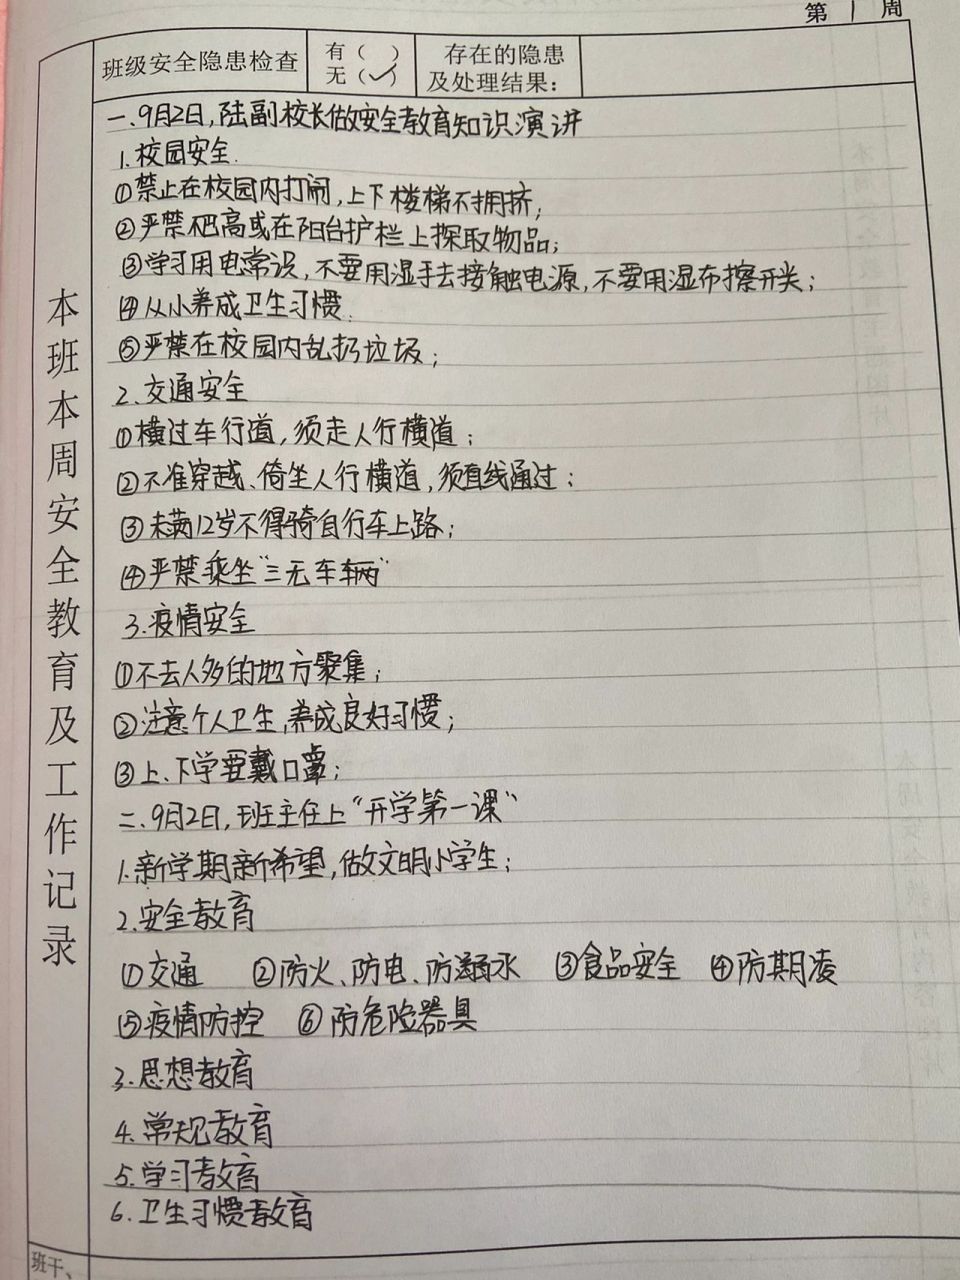 第 1 周
班级安全隐患检查 有（ ） 无（✓） 存在的隐患及处理结果：
本班本周安全教育及工作记录
一.9月2日,陆副校长做安全教育知识演讲
1.校园安全.
①禁止在校园内打闹,上下楼梯不拥挤;
②严禁爬高或在阳台护栏上探取物品;
③学习用电常识,不要用湿手去接触电源,不要用湿布擦开关;
④从小养成卫生习惯.
⑤严禁在校园内乱扔垃圾;
2.交通安全
①横过车行道,须走人行横道;
②不准穿越、倚坐人行横道,须直线通过;
③未满12岁不得骑自行车上路;
④严禁乘坐“三无车辆”
3.疫情安全
①不去人多的地方聚集;
②注意个人卫生,养成良好习惯;
③上、下学要戴口罩;
二.9月2日,班主任上“开学第一课”
1.新学期新希望,做文明小学生;
2.安全教育
①交通 ②防火、防电、防溺水 ③食品安全 ④防期凌
⑤疫情防控 ⑥防危险器具
3.思想教育
4.常规教育
5.学习教育
6.卫生习惯教育
班干、